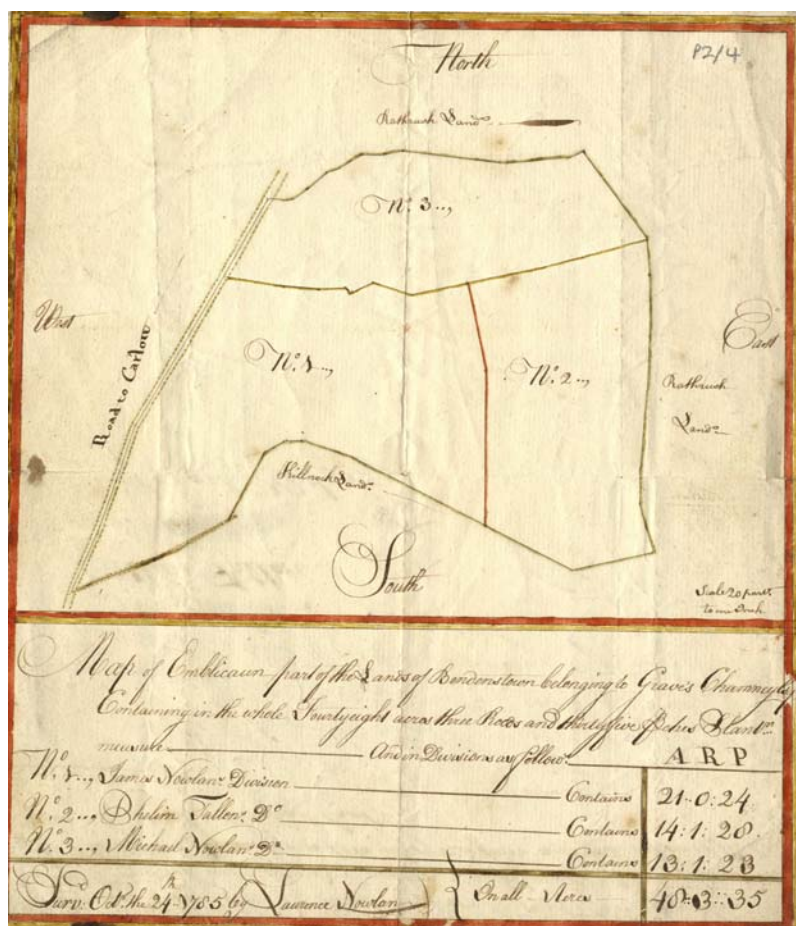 North
P2/4
Rathrush Lands
No. 3
West
East
Road to Carlow
No. 1
No. 2
Rathrush
Lands
Killnock Lands
South
Scale 20 parts
to one Inch
Map of Emblicaun part of the Lands of Bendenstown belonging to Graves Chamney Esq
Containing in the whole Fourtyeight acres three Roods and thirtyfive Perches Plantn.
measure And in Divisions as follow. A R P
No. 1 James Nowlans Division Contains 21:0:24
No. 2 Phelim Fallons Do Contains 14:1:28
No. 3 Michael Nowlans Do Contains 13:1:23
Survd. Octr. the 24th 1785 by Laurence Nowlan In all Acres 48:3:35